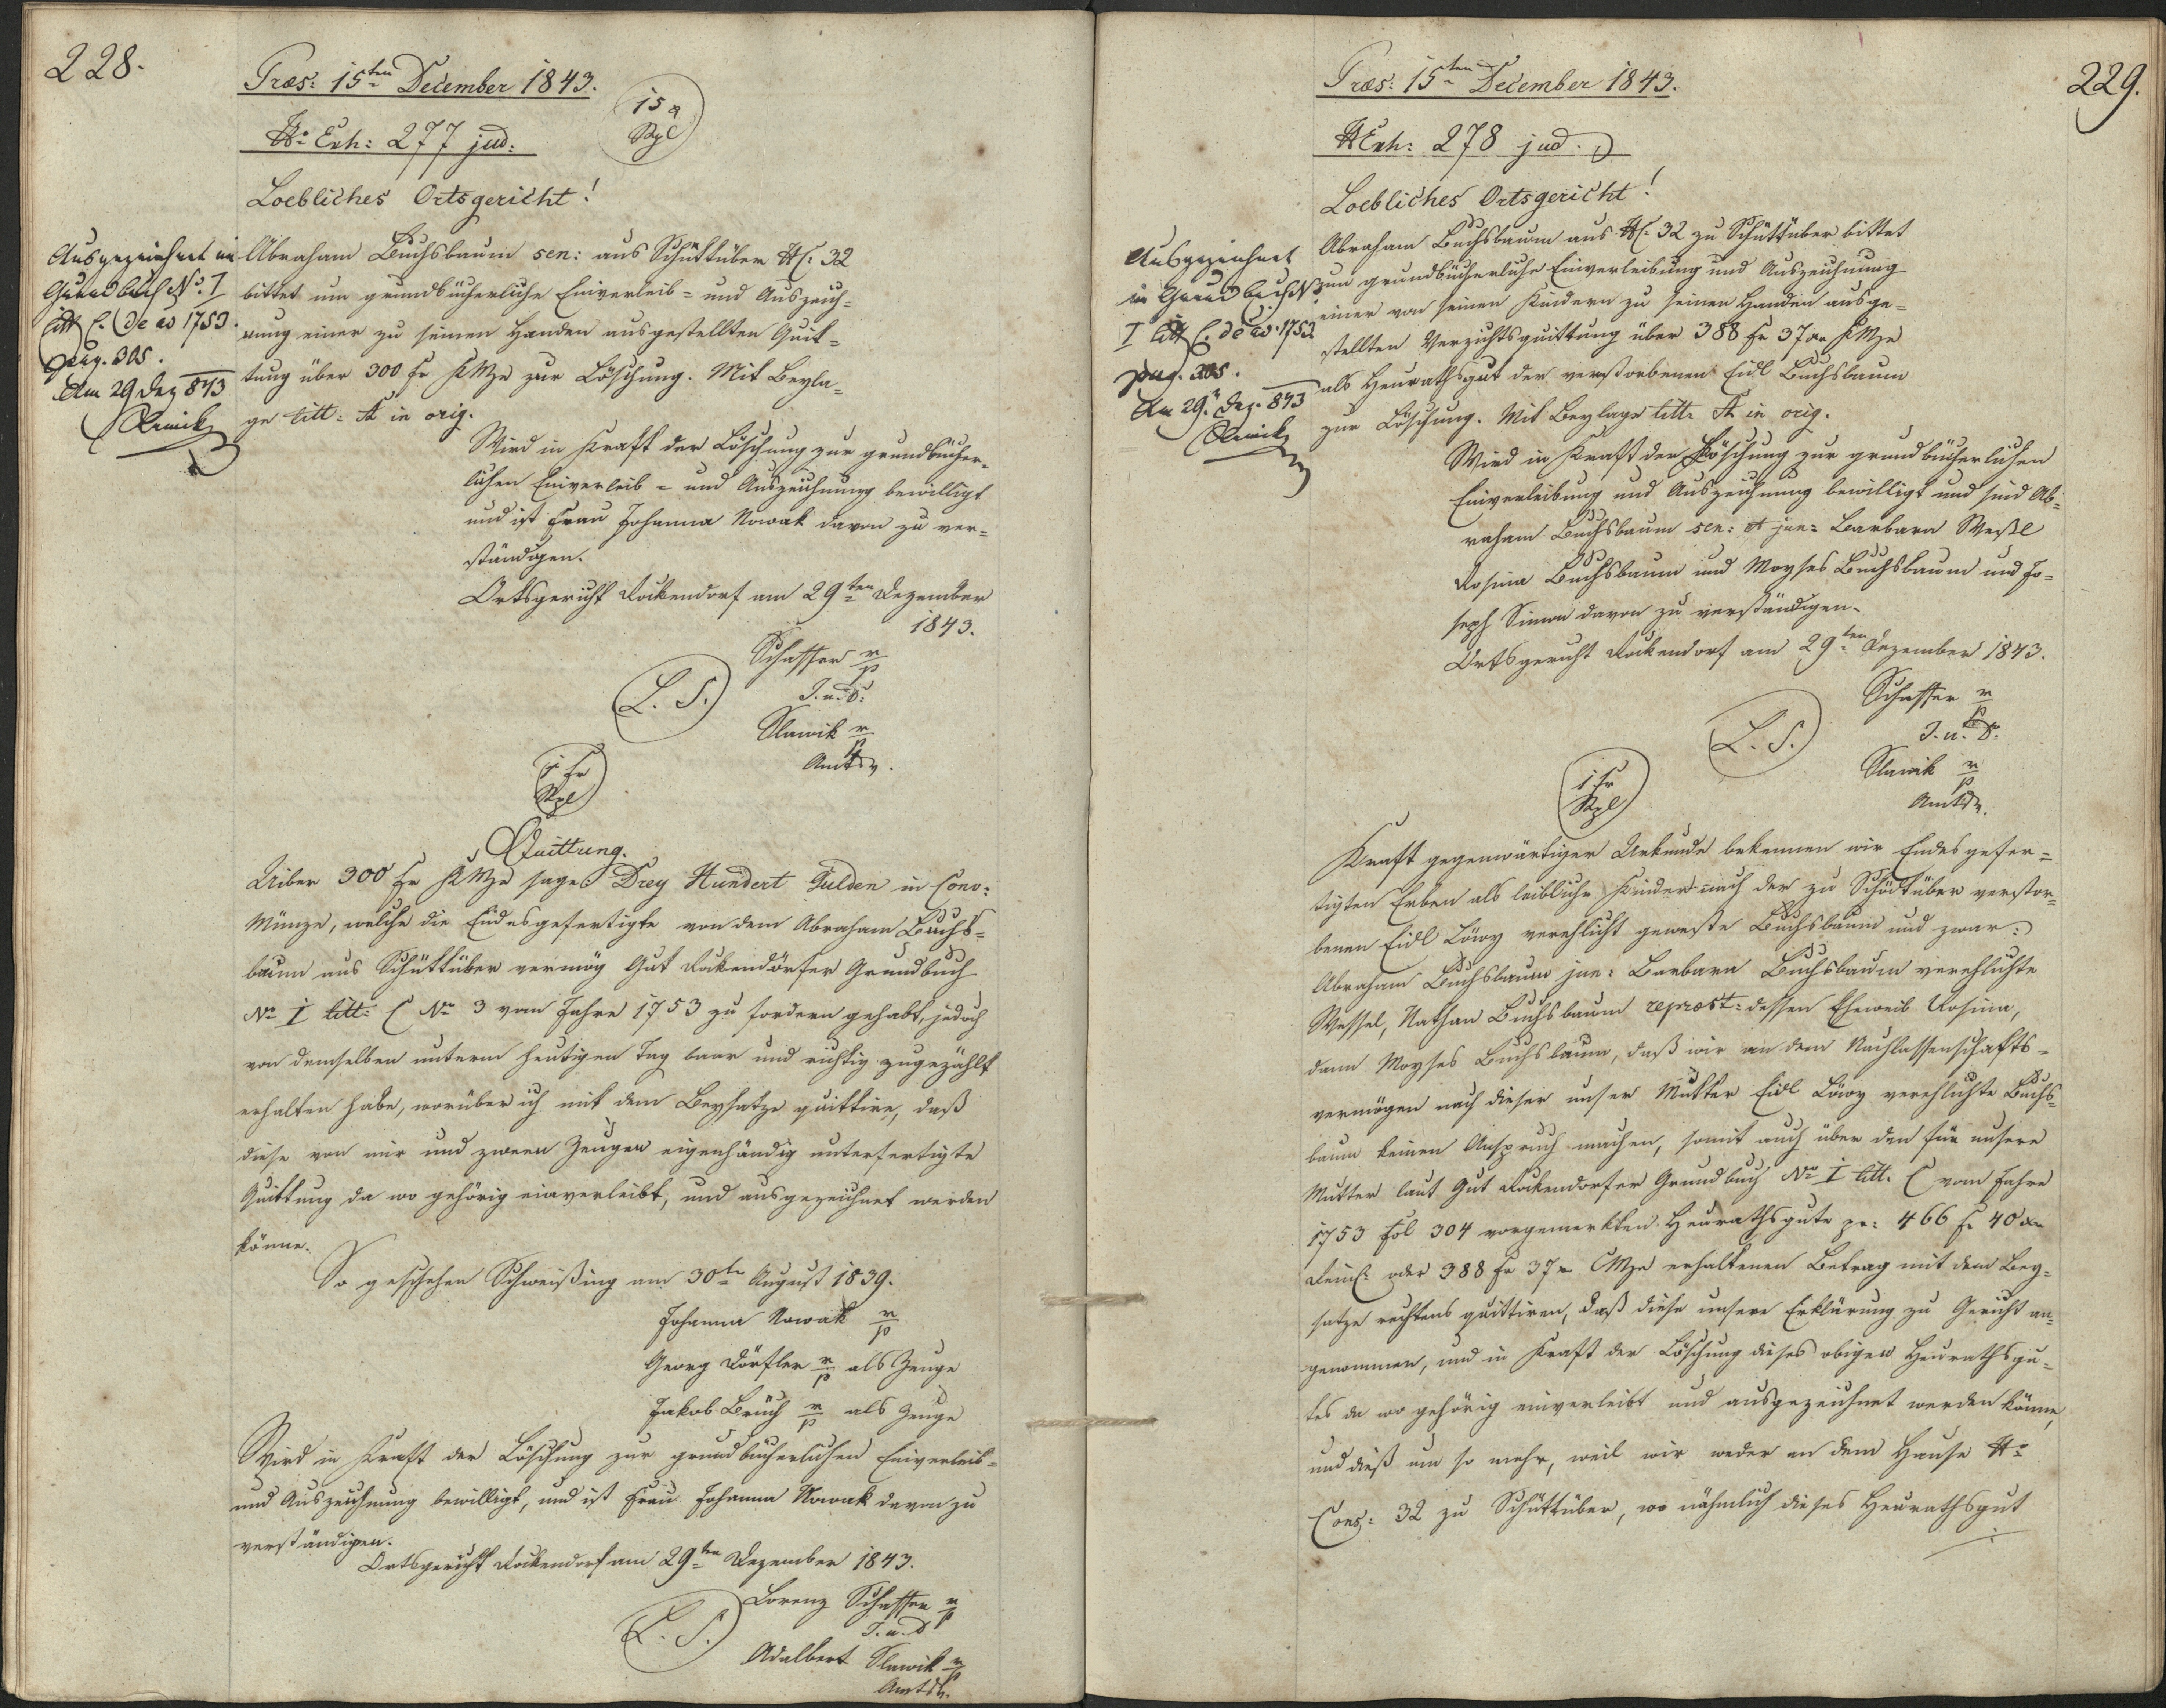 228.
Præs: 15ten December 1843.
15 x
Stpl
No Exh: 277 jud:
Loebliches Ortsgericht!
Ausgezeichnet im
Grundbuch No. I
Litt C. de ao 1753.
pag. 305.
Am 29 Dez 843
Slawik
Abraham Buchsbaum sen: aus Schüttüber NC. 32
bittet um grundbücherliche Einverleib- und Auszeich-
nung einer zu seinen Handen ausgestellten Quit-
tung über 300 fr KMze zur Löschung. Mit Beyla-
ge litt: A in orig.
Wird in Kraft der Löschung zur grundbücher-
lichen Einverleib- und Auszeichnung bewilligt
und ist Frau Johanna Nowak davon zu ver-
ständigen.
Ortsgericht Rockendorf am 29ten Dezember
1843.
Schaffer m/p
L. S.
J. u. D.
Slawik m/p
Amtsv.
1 fr
Stpl
Quittung.
Uiber 300 fr KMze sage Drey Hundert Gulden in Conv:
Münze, welche die Endesgefertigte von dem Abraham Buchs-
baum aus Schüttüber vermög Gut Rockendorfer Grundbuch
No I litt: C No 3 vom Jahre 1753 zu fordern gehabt, jedoch
von demselben unterm heutigen Tag baar und richtig zugezählt
erhalten habe, worüber ich mit dem Beysatze quittire, daß
diese von mir und zween Zeugen eigenhändig unterfertigte
Quittung da wo gehörig einverleibt, und ausgezeichnet werden
könne.
So geschehen Schweißing am 30te August 1839.
Johanna Nowak m/p
Georg Dörfler m/p als Zeuge
Jakob Bruch m/p als Zeuge
Wird in Kraft der Löschung zur grundbücherlichen Einverleib-
und Auszeichnung bewilligt, und ist Frau Johanna Nowak davon zu
verständigen.
Ortsgericht Rockendorf am 29ten Dezember 1843.
Lorenz Schaffer m/p
L. S.
J. u. D
Adalbert Slawik m/p
Amtsv.
229.
Præs: 15ten December 1843.
NExh: 278 jud.
Loebliches Ortsgericht!
Ausgezeichnet
im Grundbuch No
I litt C. de ao. 1753
pag. 305.
Am 29. Dez. 843
Slawik
Abraham Buchsbaum aus NC. 32 zu Schüttüber bittet
um grundbücherliche Einverleibung und Auszeichnung
einer von seinen Kindern zu seinen Handen ausge-
stellten Verzichtsquittung über 388 fr 37 xr KMze
als Heurathsgut der verstorbenen Eidl Buchsbaum
zur Löschung. Mit Beylage litt. A in orig.
Wird in Kraft der Löschung zur grundbücherlichen
Einverleibung und Auszeichnung bewilligt und sind Ab-
raham Buchsbaum sen: et jun: Barbara Weßl
Rosina Buchsbaum und Moyses Buchsbaum und Jo-
seph Simon davon zu verständigen.
Ortsgericht Rockendorf am 29ten Dezember 1843.
Schaffer m/p
L. S.
J. u. D.
Slawik m/p
Amtsv.
1 fr
Stpl
Kraft gegenwärtiger Urkunde bekennen wir Endesgefer-
tigten Erben als leibliche Kinder nach der zu Schüttüber verstor-
benen Eidl Löwy verehlicht geweste Buchsbaum und zwar:
Abraham Buchsbaum jun: Barbara Buchsbaum verehlichte
Wessel, Nathan Buchsbaum repræst: dessen Eheweib Rosina,
dann Moyses Buchsbaum, daß wir an dem Nachlassenschafts-
vermögen nach dieser unser Mutter Eidl Löwy verehlichte Buchs-
baum keinen Anspruch machen, somit auch über den für unsere
Mutter laut Gut Rockendorfer Grundbuch No I litt. C vom Jahre
1753 Fol 304 vorgemerkten Heurathsgute pr: 466 f. 40 xr
oder 388 fr 37 x CMze erhaltenen Betrag mit dem Bey-
satze rechtens quittiren, daß diese unsere Erklärung zu Gericht an-
genommen, und in Kraft der Löschung dieses obigen Heurathsgu-
tes da wo gehörig einverleibt und ausgezeichnet werden könne,
und dieß um so mehr, weil wir weder an dem Hause No
Cons: 32 zu Schüttüber, wo nähmlich dieses Heurathsgut